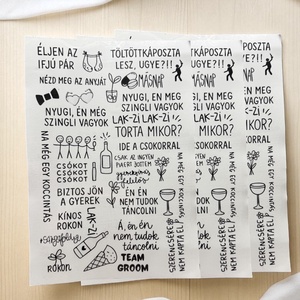 ÉLJEN AZ
IFJÚ PÁR
NÉZD MEG AZ ANYJÁT
NYUGI, ÉN MÉG
SZINGLI VAGYOK
NA MÉG EGY KOCCINTÁS
CSÓKOT
CSÓKOT
CSÓKOT
BIZTOS JÖN
A GYEREK
KÍNOS
ROKON
LAK-ZI
ROKON
TÖLTÖTTKÁPOSZTA
LESZ, UGYE?!!
MÁSNAP
NYUGI, ÉN MÉG
SZINGLI VAGYOK
LAK-ZI LAK-ZI
TORTA MIKOR?
IDE A CSOKORRAL
CSAK AZ INGYEN
PIÁÉRT JÖTTEM
ÉN ÉN
NEM TUDOK
TÁNCOLNI
Á, én én
nem tudok
táncolni
TEAM
GROOM
KÁPOSZTA
UGYE?!!
ÉN MÉG
VAGYOK
LAK-ZI
MIKOR?
CSOKORRAL
NA MÉG EGY KOCCINTÁS
SZERENCSÉRE
NEM KAPTA EL
KÁPOSZTA
UGYE?!!
ÉN MÉG
VAGYOK
LAK-ZI
MIKOR?
CSOKORRAL
NA MÉG EGY KOCCINTÁS
SZERENCSÉRE
NEM KAPTA EL